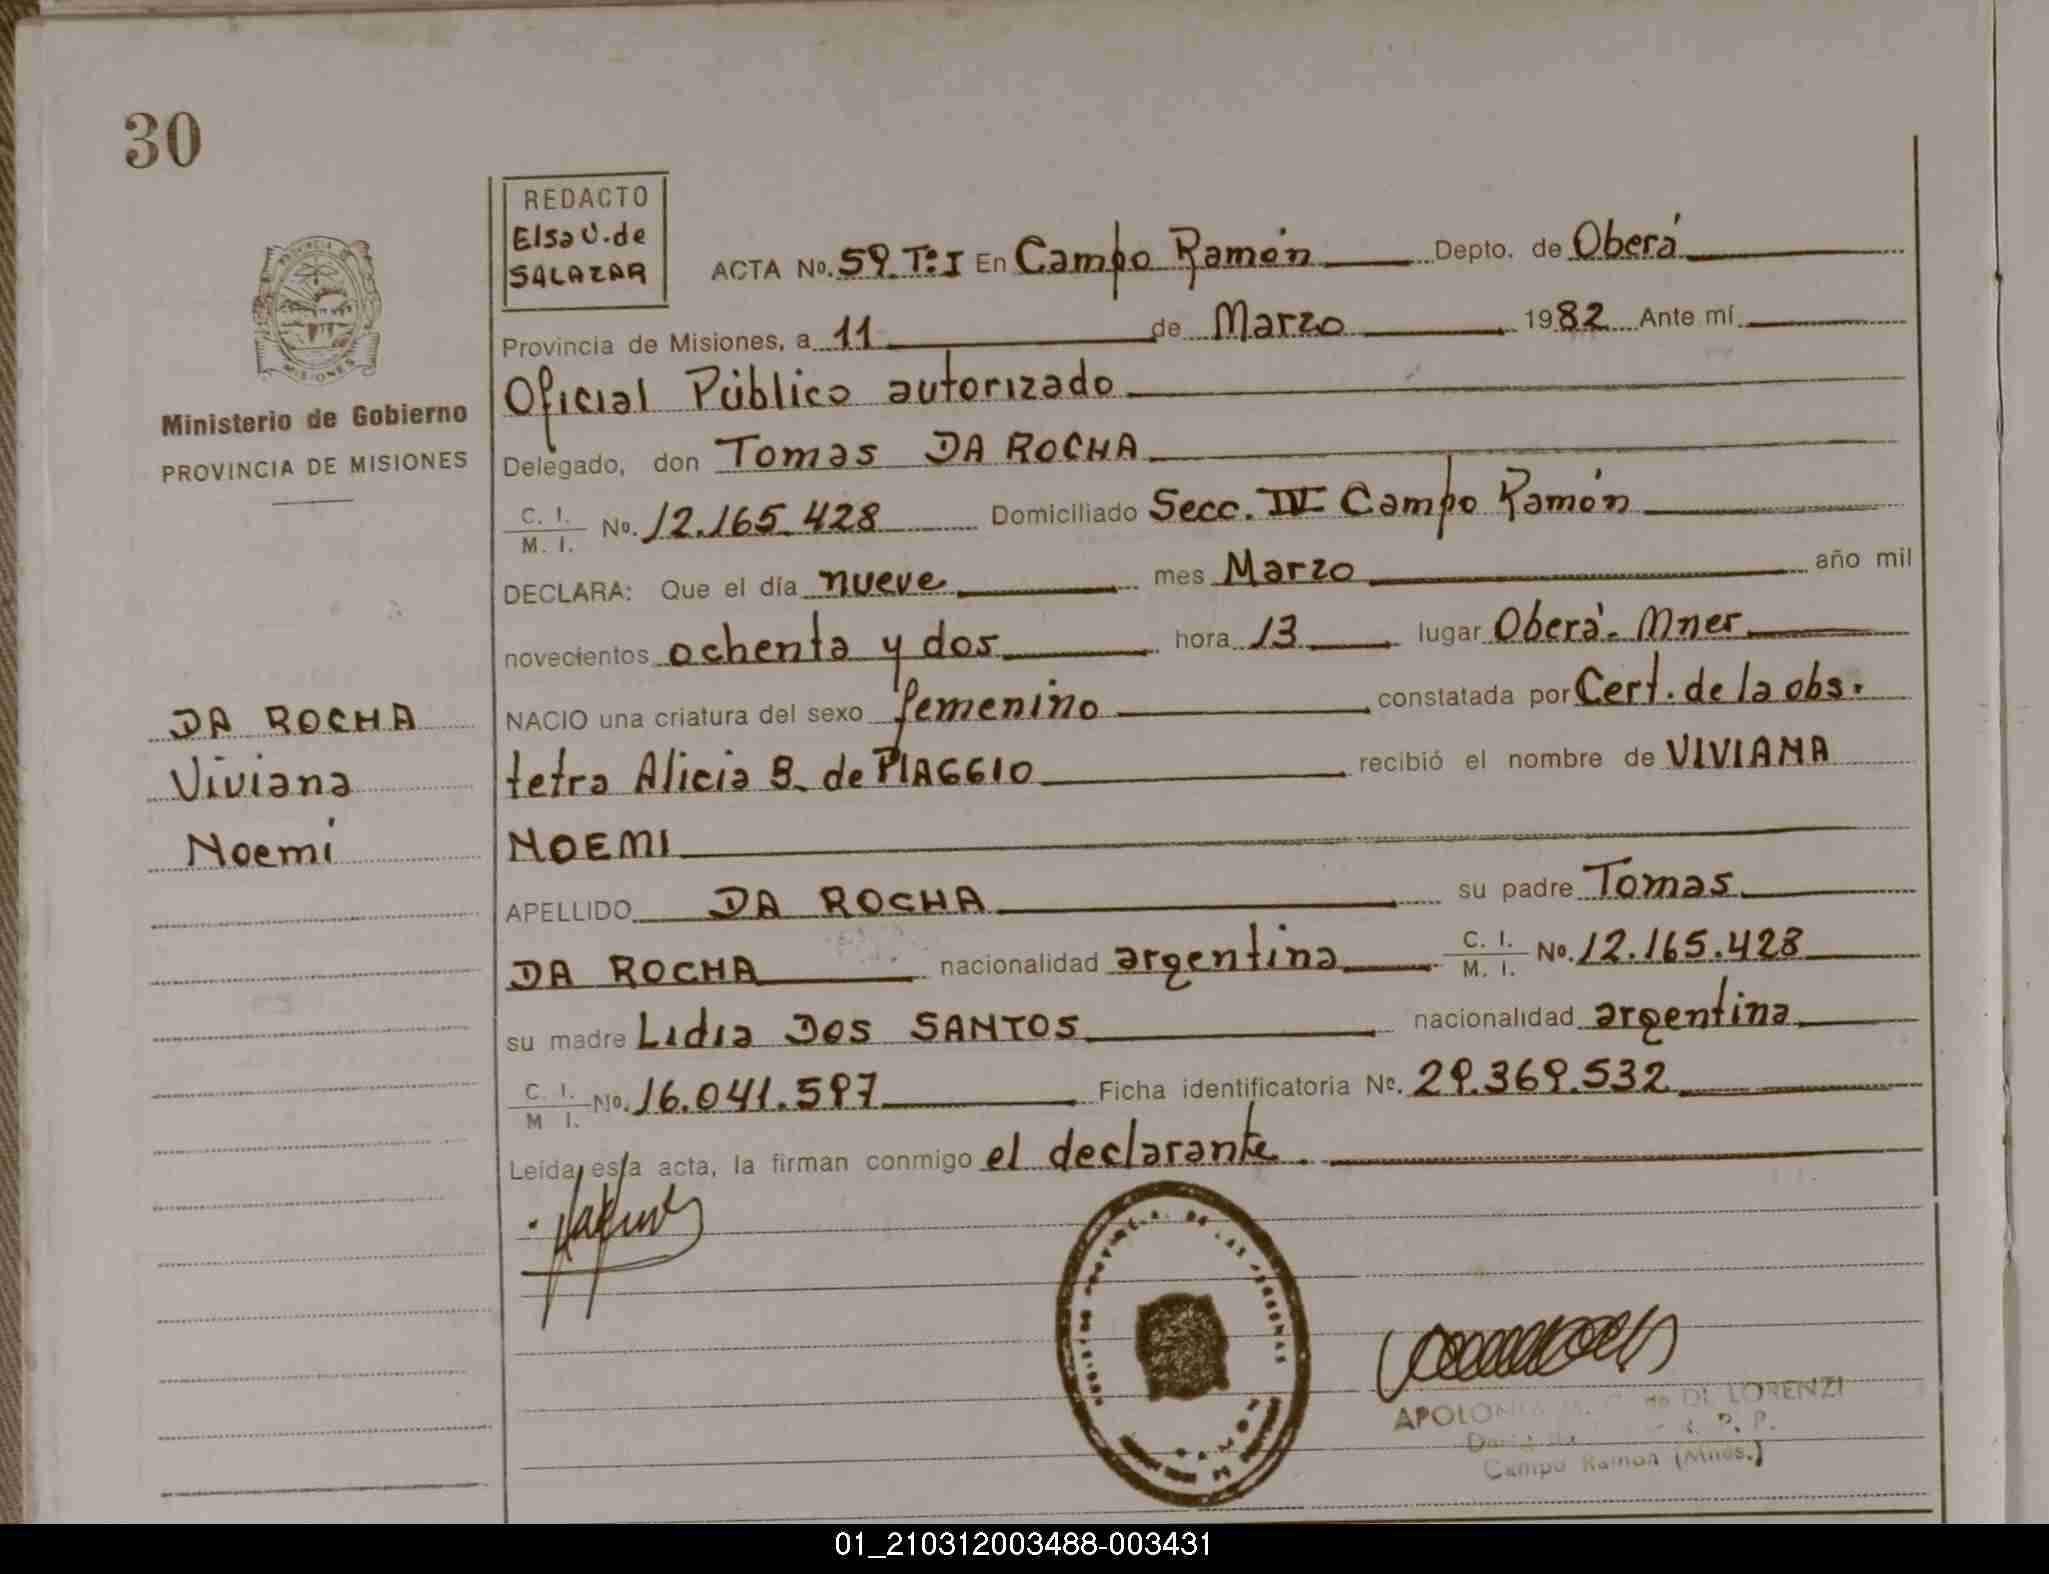 30
REDACTO
Elsa U. de
SALAZAR
ACTA No. 59 Tº: I En Campo Ramón Depto. de Oberá
Provincia de Misiones, a 11 de Marzo 1982 Ante mí
Oficial Público autorizado
MISIONES
Ministerio de Gobierno
PROVINCIA DE MISIONES
Delegado, don Tomas DA ROCHA
C. I.
M. I. No. 12.165.428 Domiciliado Secc. IV Campo Ramón
DECLARA: Que el día nueve mes Marzo año mil
novecientos ochenta y dos hora 13 lugar Oberá. Mnes
DA ROCHA
Viviana
Noemí
NACIO una criatura del sexo femenino constatada por Cert. de la obs.
tetra Alicia B. de PIAGGIO recibió el nombre de VIVIANA
NOEMI
APELLIDO DA ROCHA su padre Tomas
DA ROCHA nacionalidad argentina C. I.
M. I. No. 12.165.428
su madre Lidia DOS SANTOS nacionalidad argentina
C. I.
M I. No. 16.041.597 Ficha identificatoria Nº. 29.369.532
Leída esta acta, la firman conmigo el declarante.
APOLONIA de DI LORENZI
Campo Ramon (Mnes.)
01_210312003488-003431